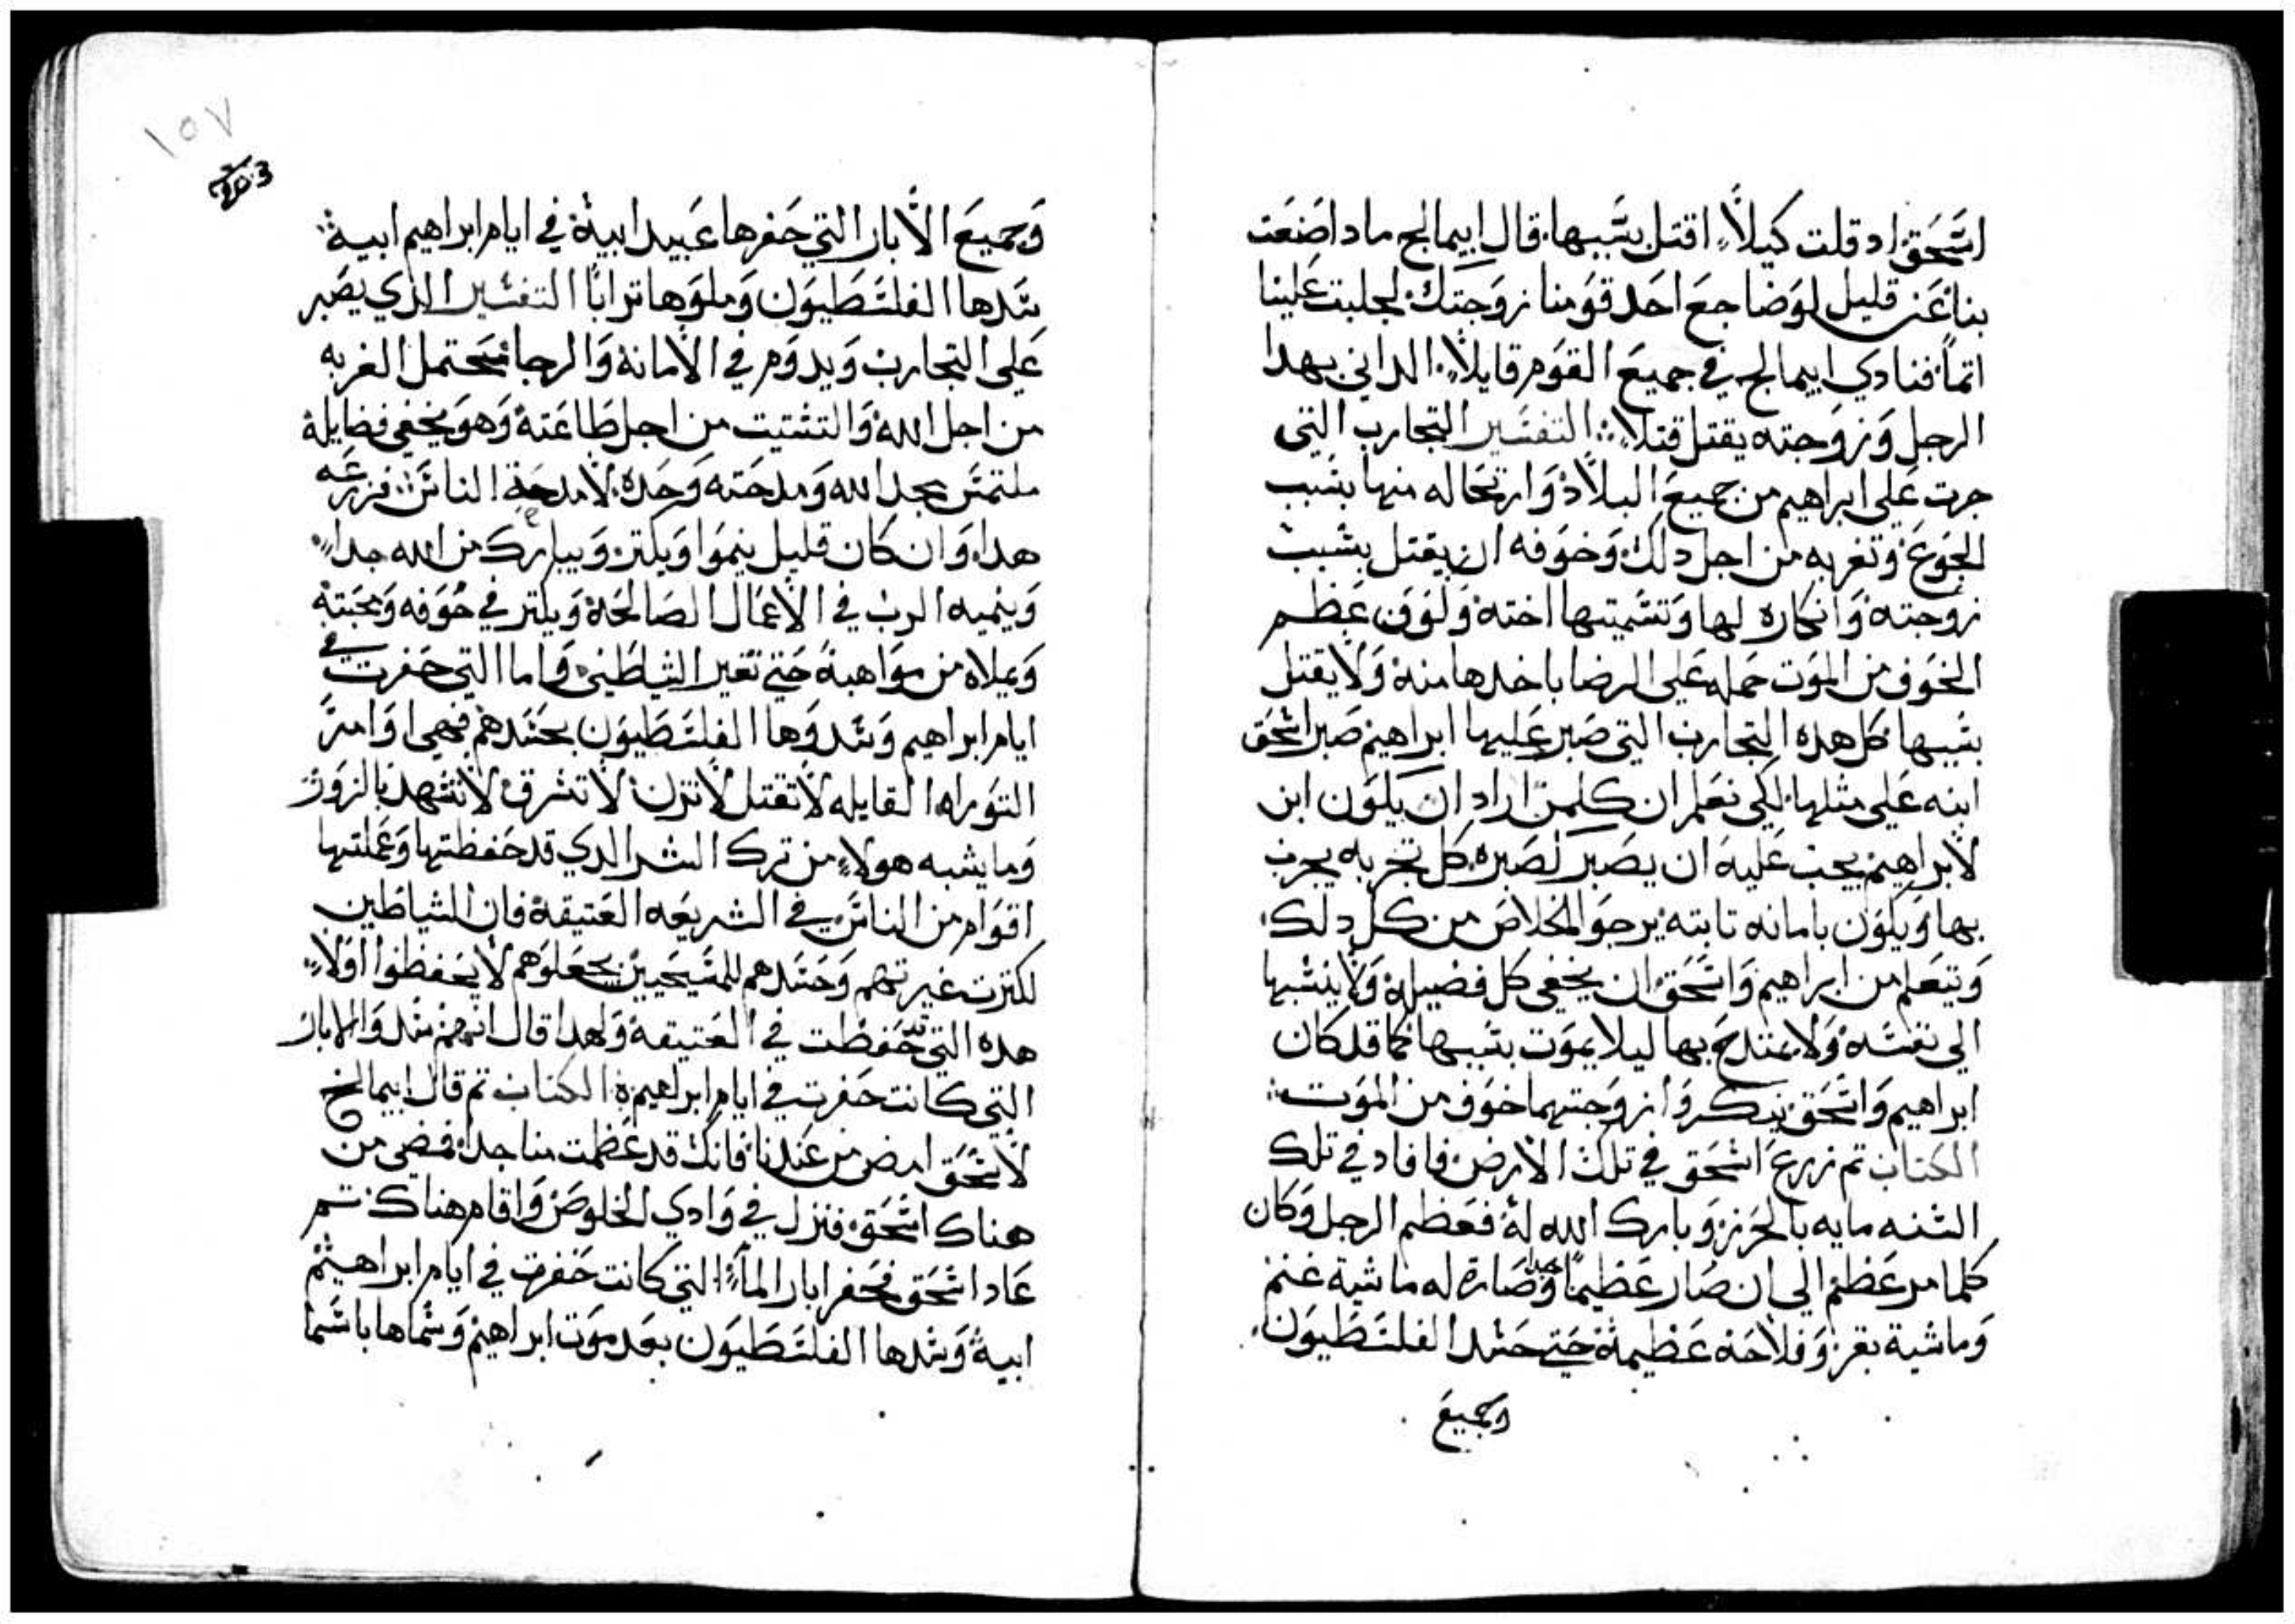 اسحق اد قلت كيلا اقتل بسببها قال ابيمالخ مادا صنعت
بنا عن قليل لوضاجع احد قومنا زوجتك لجلبت علينا
اتما فنادي ابيمالخ في جميع القوم قايلا الداني بهدا
الرجل وزوجته يقتل قتلا التفسير التجارب التي
جرت علي ابراهيم من جميع البلاد وارتحاله منها بسبب
الجوع وتغربه من اجل دلك وخوفه ان يقتل بسبب
زوجته وانكاره لها وتسميتها اخته ولوفن عظم
الخوف من الموت حمله علي الرضا باخدها منه ولا يقتل
بسببها كل هده التجارب التي صبر عليها ابراهيم صبر اسحق
ابنه علي مثلها لكي نعلم ان كلمن اراد ان يكون ابن
لابراهيم يجب عليه ان يصبر لصبره كل تجربه يجرب
بها ويكون بامانه تابته يرجو الخلاص من كل دلك
ويتعلم من ابراهيم واسحق ان يخفي كل فضيله ولا ينسبها
الي نفسه ولا يمتدح بها ليلا يموت بسببها كما قد كان
ابراهيم واسحق ينكروا زوجتهما خوف من الموت
الكتاب تم زرع اسحق في تلك الارض فافاد في تلك
السنه مايه بالحزر وبارك الله له فعظم الرجل وكان
كلما مر عظم الي ان صار عظيما جدا وصارة له ماشية غنم
وماشية بقر وفلاحه عظيمة حتي حسد الفلسطيون
وجميع
١٥٧
وجميع الابار التي حفرها عبيد ابية في ايام ابراهيم ابية
سدها الفلسطيون وملوها ترابا التفسير الدي يصبر
علي التجارب ويدوم في الامانة والرجا محتمل الغربه
من اجل الله والتشتيت من اجل طاعته وهو يخفي فضايلة
ملتمس مجد الله ومدحته وحده لا مدحة الناس فزرعه
هدا وان كان قليل ينموا ويكتر ويبارك من الله جدا
وينميه الرب في الاعمال الصالحة ويكتر في خوفه ومحبته
ويملاه من مواهبة حتي تغير الشياطين واما التي حفرت في
ايام ابراهيم وسدوها الفلسطيون بحسدهم فهي اوامر
التوراه القايله لا تقتل لا تزن لا تسرق لا تشهد بالزور
وما يشبه هولاء من ترك الشر الدي قد حفظتها وعملتها
اقوام من الناس في الشريعه العتيقة فان الشياطين
لكترت غيرتهم وحسدهم للمسيحيين يجعلوهم لا يحفظوا اولا
هده التي قد حفظت في العتيقة ولهدا قال انهم سدوا الابار
التي كانت حفرت في ايام ابراهيم الكتاب تم قال ابيمالخ
لاسحق امض من عندنا فانك قد عظمت منا جدا فمضي من
هناك اسحق فنزل في وادي الخلوص واقام هناك تم
عاد اسحق فحفر ابار الماء التي كانت حفرت في ايام ابراهيم
ابية وسدها الفلسطيون بعد موت ابراهيم وسماها باسما